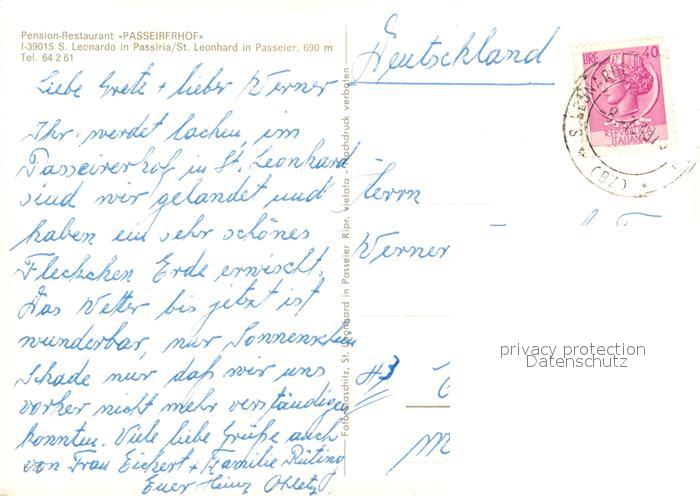 Pension-Restaurant »PASSEIRERHOF«
I-39015 S. Leonardo in Passiria/St. Leonhard in Passeier, 690 m
Tel. 64 2 61
Liebe Grete + lieber Werner
Ihr werdet lachen, im
Passeirerhof in St. Leonhard
sind wir gelandet und
haben ein sehr schönes
Fleckchen Erde erwischt.
Das Wetter bis jetzt ist
wunderbar, nur Sonnenschein
Schade nur daß wir uns
vorher nicht mehr verständigen
konnten. Viele liebe Grüße auch
von Frau Eickert + Familie
Euer Heinz
Ripr. vietata - Nachdruck verboten
St. Leonhard in Passeier
Deutschland
LIRE 40
REPUBBLICA
ITALIANA
S. LEONARDO
(BZ)
Herrn
Werner
43
privacy protection
Datenschutz